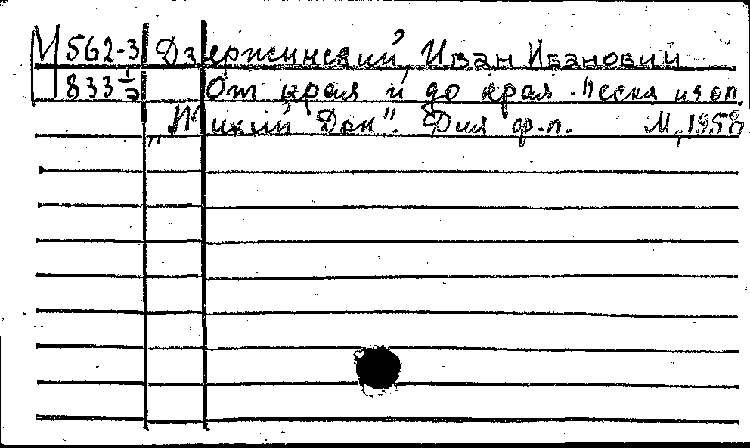 М 562-3 Дзержинский, Иван Иванович
833 1/2 От края и до края. Песня из оп.
"Тихий Дон". Для ф-п. М., 1958